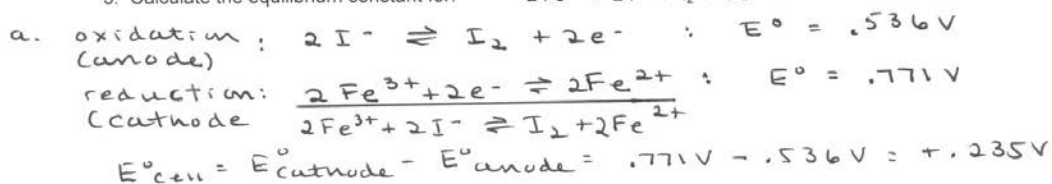 3. Calculate the equilibrium constant for:
a. oxidation : 2 I⁻ ⇌ I₂ + 2e⁻ : E° = .536 V
(anode)
reduction: 2 Fe³⁺ + 2e⁻ ⇌ 2Fe²⁺ : E° = .771 V
(cathode 2Fe³⁺ + 2 I⁻ ⇌ I₂ + 2Fe²⁺
E°cell = E°cathode - E°anode = .771V - .536V = +.235V